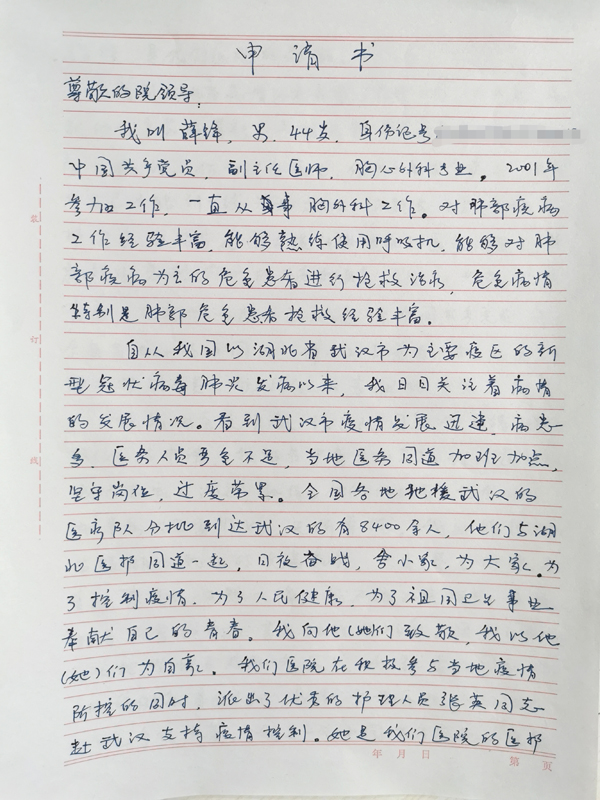 申请书
尊敬的院领导：
我叫薛锋，男，44岁，身份证号
中国共产党员，副主任医师，胸心外科专业。2001年
参加工作，一直从事胸外科工作。对肺部疾病
工作经验丰富，能够熟练使用呼吸机，能够对肺
部疾病为主的危急患者进行抢救治疗，危急病情
特别是肺部危急患者抢救经验丰富。
自从我国以湖北省武汉市为主要疫区的新
型冠状病毒肺炎发病以来，我日日关注着病情
的发展情况。看到武汉市疫情发展迅速，病患
多，医务人员严重不足，当地医务同道加班加点，
坚守岗位，过度劳累。全国各地驰援武汉的
医疗队分批到达武汉的有8400余人，他们与湖
北医护同道一起，日夜奋战，舍小家，为大家。为
了控制疫情，为了人民健康，为了祖国卫生事业
奉献自己的青春。我向他(她)们致敬，我以他
(她)们为自豪。我们医院在积极参与当地疫情
防控的同时，派出了优秀的护理人员张英同志
赴武汉支持疫情控制。她是我们医院的医护
装
订
线
年 月 日
第 页